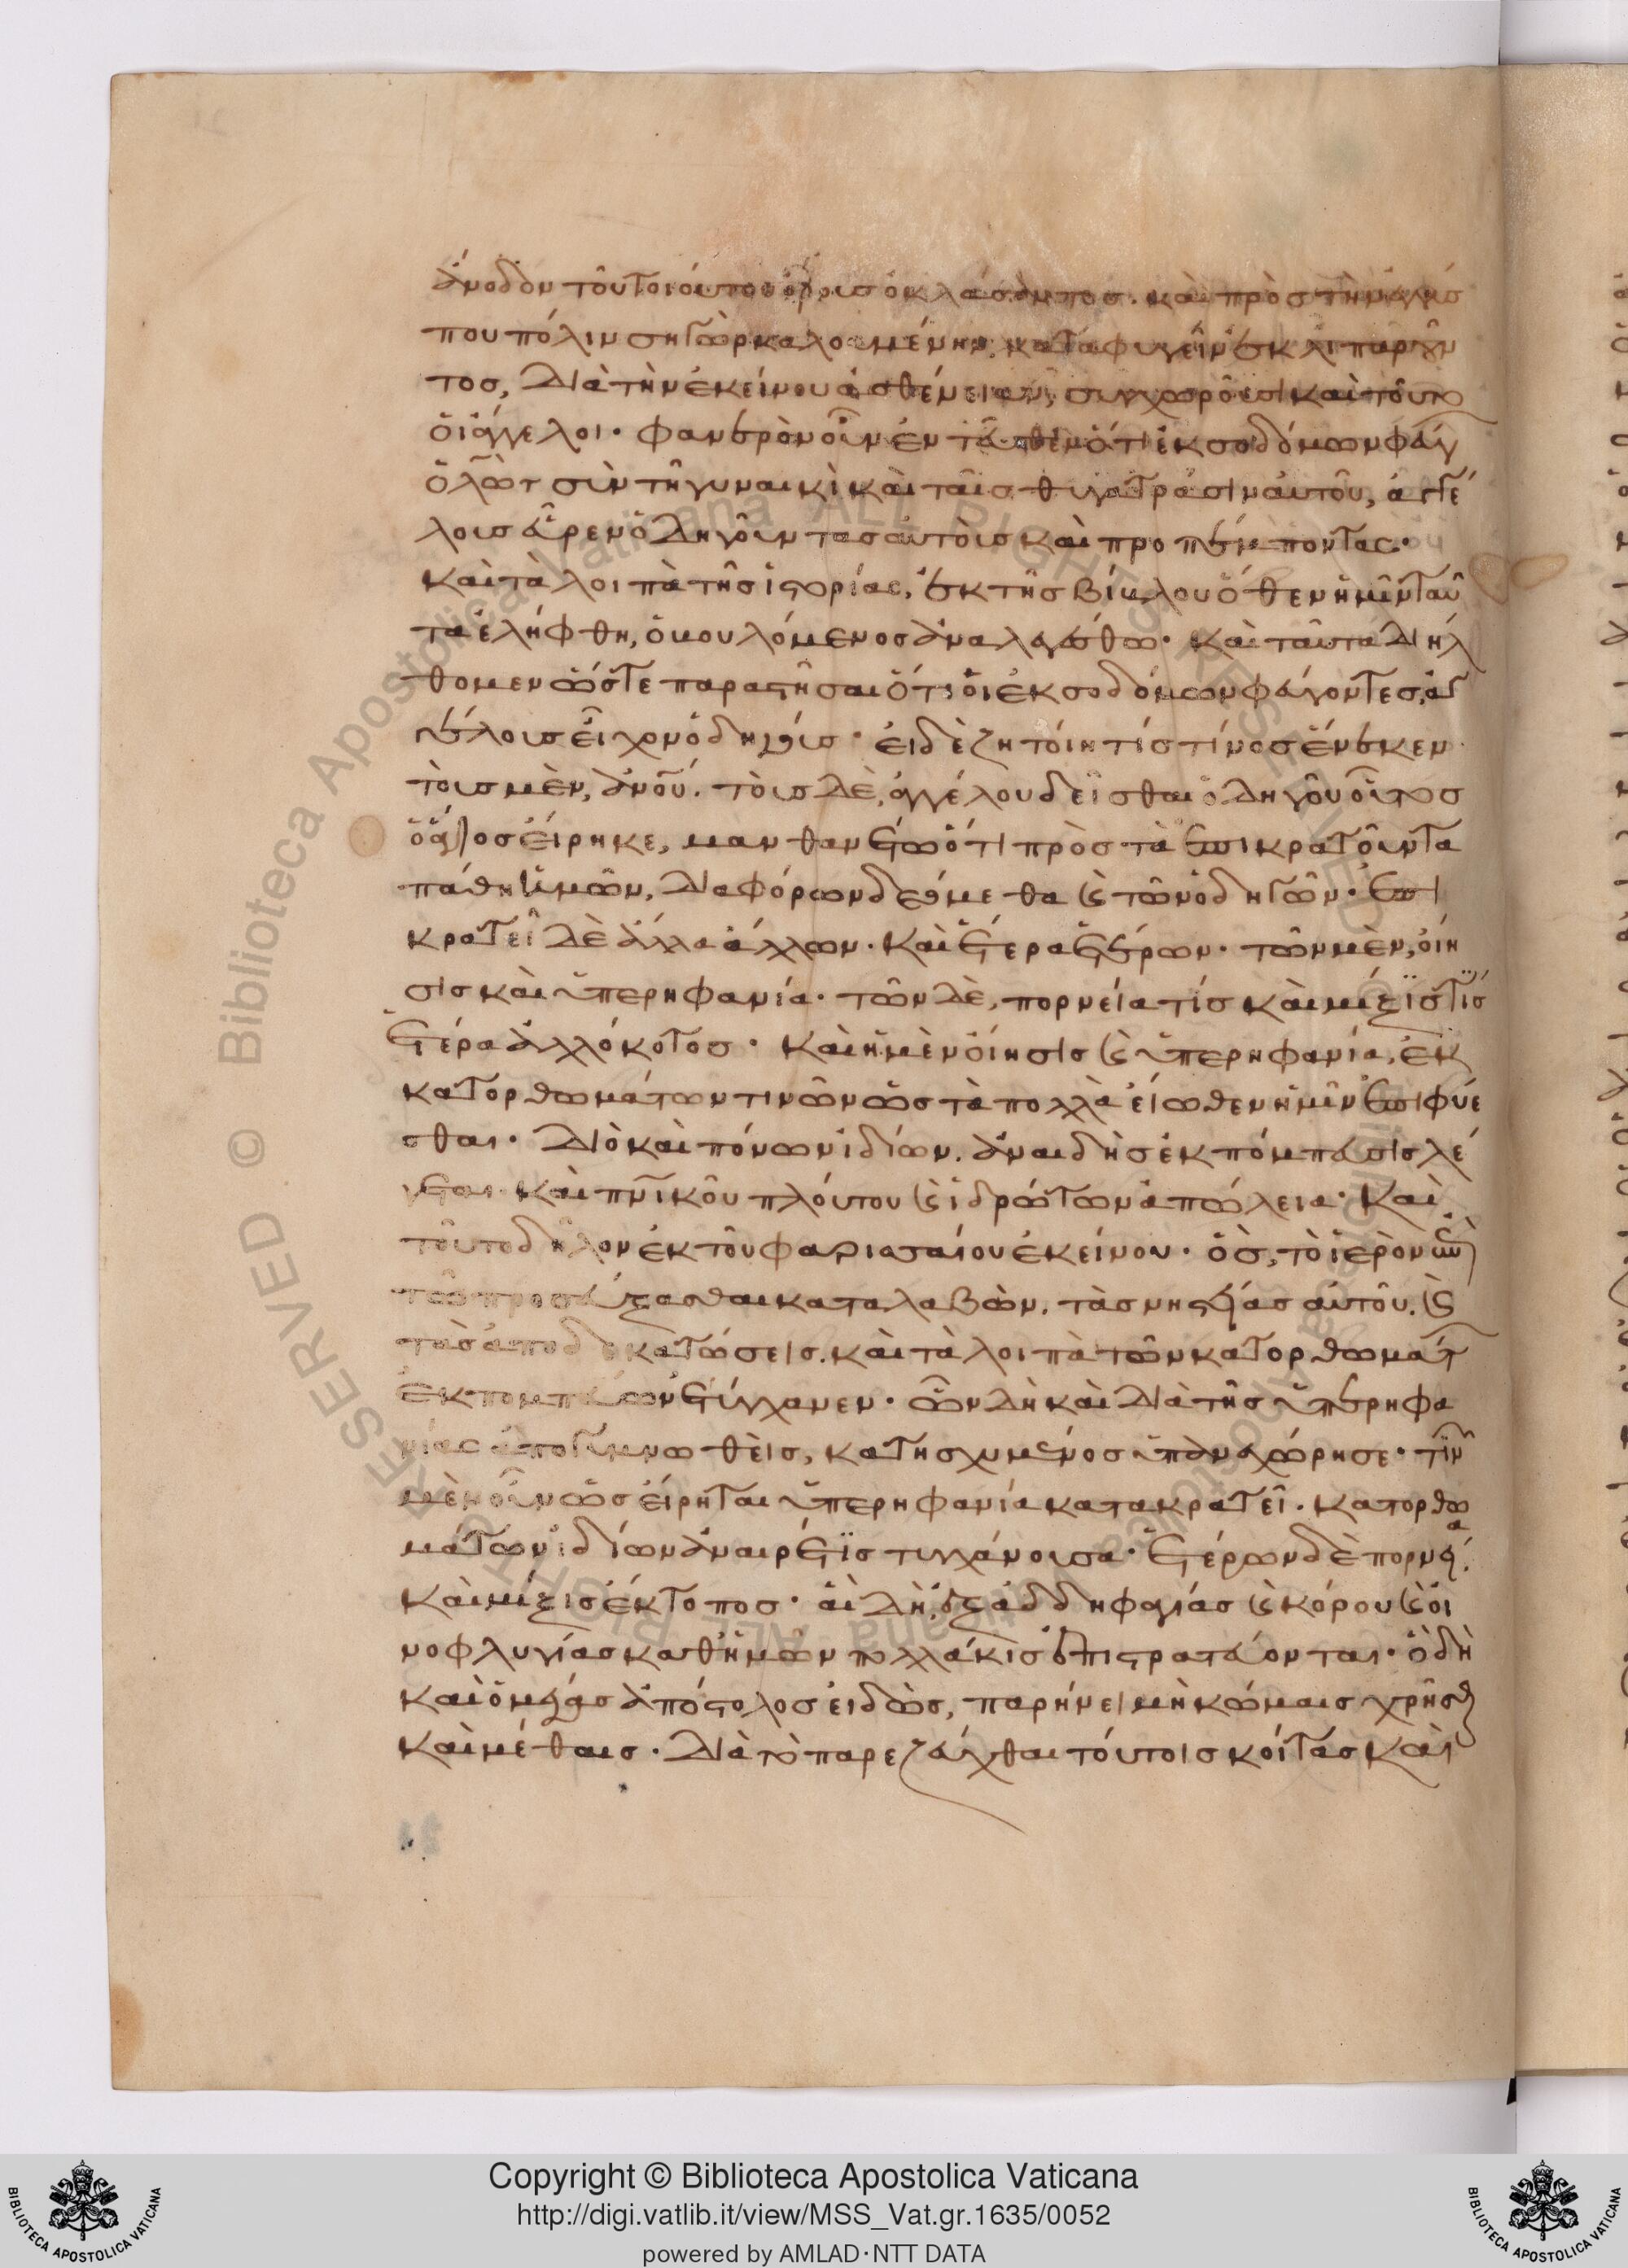 ἄνοδον τοῦ τοιούτου ὄρους ὀκλάσαντος. καὶ πρὸς τὴν
που πόλιν σηγὼρ καλουμένην καταφυγεῖν ἐκλιπαροῦν
τος, διὰ τὴν ἐκείνου ἀσθένειαν, συγχωροῦσι καὶ τοῦτο
οἱ ἄγγελοι. φανερὸν οὖν ἐντεῦθεν ὅτι ἐκ σοδόμων φεύγ
ὁ λὼτ σὺν τῇ γυναικὶ καὶ ταῖς θυγατράσιν αὐτοῦ, ἀγγέ
λους εὗρεν ὁδηγοῦντας αὐτοὺς καὶ προπέμποντας.
καὶ τὰ λοιπὰ τῆς ἱστορίας, ἐκ τῆς βίβλου ὅθεν ἡμῖν ταῦ
τα ἐλήφθη, ὁ βουλόμενος ἀναλεγέσθω. καὶ ταῦτα διήλ
θομεν ὥστε παραστῆσαι ὅτι οἱ ἐκ σοδόμων φεύγοντες, ἀγ
γέλους εἶχον ὁδηγούς. εἰ δὲ ζητοίη τίς τίνος ἕνεκεν
τοῖς μὲν, ἀνου. τοῖς δὲ, ἀγγέλου δεῖσθαι ὁδηγοῦ οὗτος
ὁ ἅγιος εἴρηκε, μανθανέτω ὅτι πρὸς τὰ ἐπικρατοῦντα
πάθη ἡμῶν, διαφόρων δεόμεθα καὶ τῶν ὁδηγῶν. ἐπι
κρατεῖ δὲ ἄλλα ἄλλων. καὶ ἕτερα ἑτέρων. τῶν μὲν, οἴη
σις καὶ ὑπερηφανία. τῶν δὲ, πορνεία τίς καὶ μίξις τίς
ἑτέρα ἀλλόκοτος. καὶ ἡ μὲν οἴησις καὶ ὑπερηφανία, ἐκ
κατορθωμάτων τινῶν ὡς τὰ πολλὰ εἴωθεν ἡμῖν ἐπιφύε
σθαι. διὸ καὶ πόνων ἰδίων. ἀναιδὴς ἐκπόμπευσις λέ
γεται. καὶ πνικοῦ πλούτου καὶ ἱδρώτων ἀπώλεια. καὶ
τοῦτο δῆλον ἐκ τοῦ φαρισαίου ἐκείνου. ὃς, τὸ ἱερὸν ἐν
τῶ προσεύξασθαι καταλαβὼν. τὰς νηστείας αὐτοῦ. καὶ
τὰς ἀποδεκατώσεις. καὶ τὰ λοιπὰ τῶν κατορθωμάτ
ἐκπομπεύων ἐτύγχανεν. ὧν δὴ καὶ διὰ τῆς ὑπερηφα
νίας ἀπογυμνωθεὶς, κατησχυμένος ὑπανεχώρησε. τινῶν
μὲν οὖν ὡς εἴρηται ὑπερηφανία κατακρατεῖ. κατορθω
μάτων ἰδίων ἀναιρέτις τυγχάνουσα. ἑτέρων δὲ πορνεία.
καὶ μίξις ἔκτοπος. αἳ δὴ, ἐξ ἀδδηφαγίας καὶ κόρου καὶ οἰ
νοφλυγίας καθ' ἡμῶν πολλάκις ἐπιστρατεύονται. ὃ δὴ
καὶ ὁ μέγας ἀπόστολος εἰδὼς, παρήνει μὴ κώμαις χρῆσθ
καὶ μέθαις. διὰ τὸ παρεζεύχθαι τούτοις κοίτας καὶ
Copyright © Biblioteca Apostolica Vaticana
http://digi.vatlib.it/view/MSS_Vat.gr.1635/0052
powered by AMLAD·NTT DATA